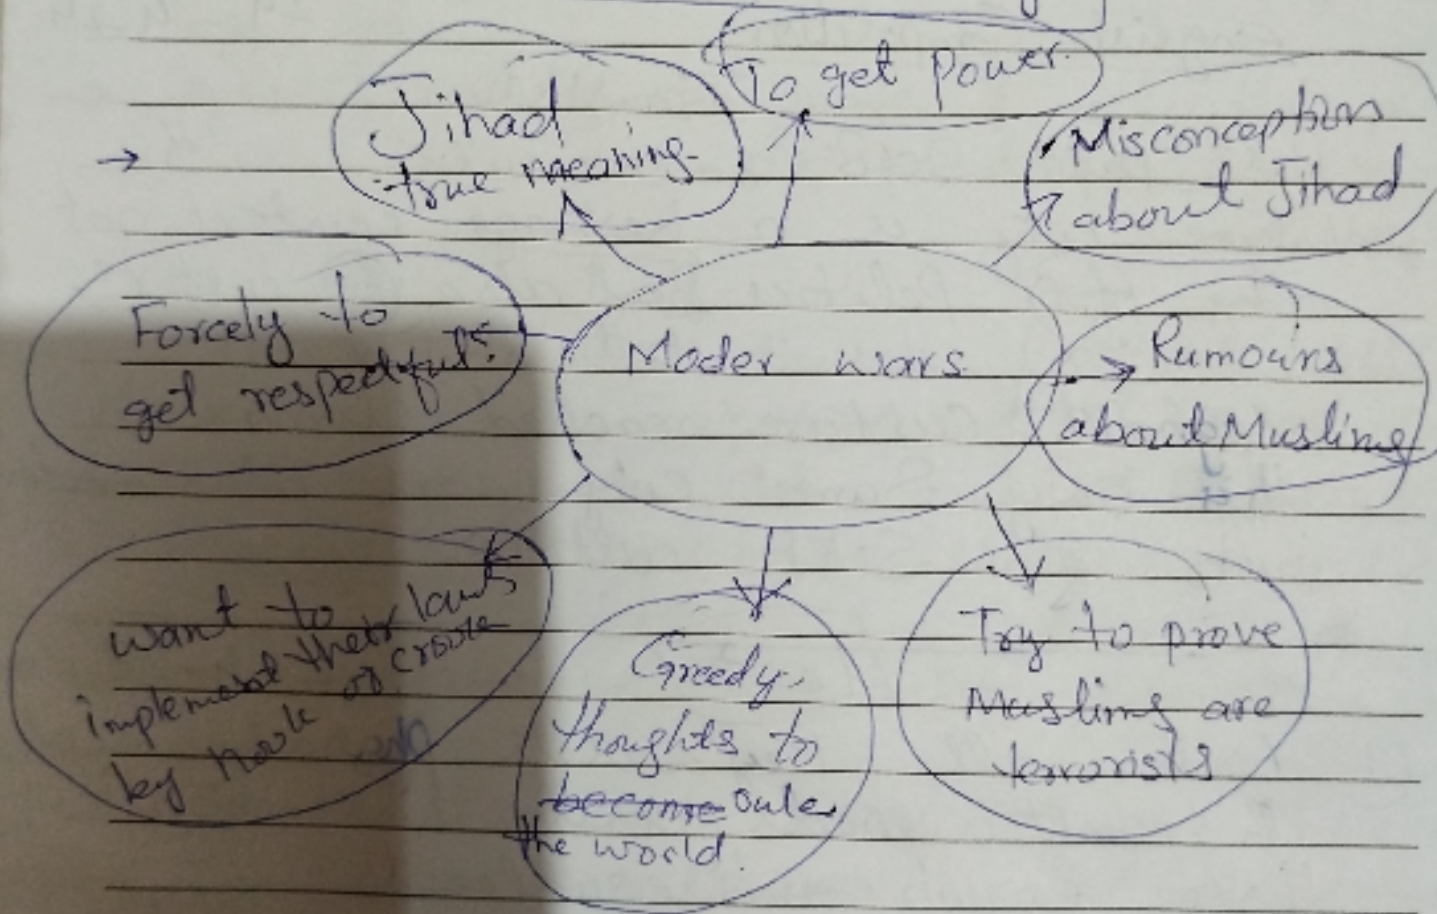 To get Power.
Jihad
true meaning.
Misconception
about Jihad
Forcely to
get respectful.
Moder wars
Rumours
about Muslims
want to
implement their laws
by hook or crook
Greedy,
thoughts to
become rule
the world.
Try to prove
Muslims are
terrorists